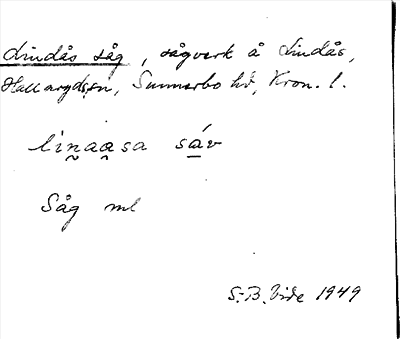 Lindås såg, sågverk å Lindås,
Hallaryds sn, Sunnerbo hd, Kron. l.
linaasa sáv
Såg ml
S.B. Vide 1949